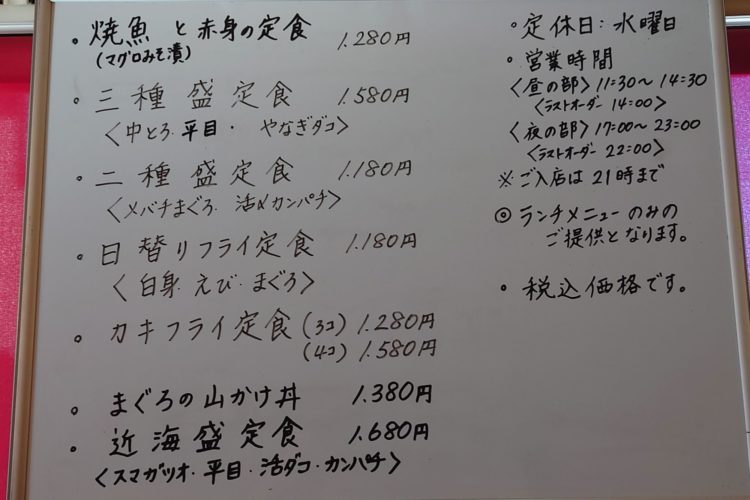 ・焼魚と赤身の定食 1.280円
(マグロみそ漬)
・三種盛定食 1.580円
〈中とろ.平目・やなぎダコ〉
・二種盛定食 1.180円
〈メバチまぐろ.活〆カンパチ〉
・日替りフライ定食 1.180円
〈白身.えび.まぐろ〉
・カキフライ定食(3コ) 1.280円
(4コ) 1.580円
・まぐろの山かけ丼 1.380円
・近海盛定食 1.680円
〈スマガツオ・平目・活ダコ・カンパチ〉
・定休日:水曜日
・営業時間
〈昼の部〉11:30～14:30
〈ラストオーダー 14:00〉
〈夜の部〉17:00～23:00
〈ラストオーダー 22:00〉
※ご入店は21時まで
◎ランチメニューのみの
ご提供となります。
・税込価格です。